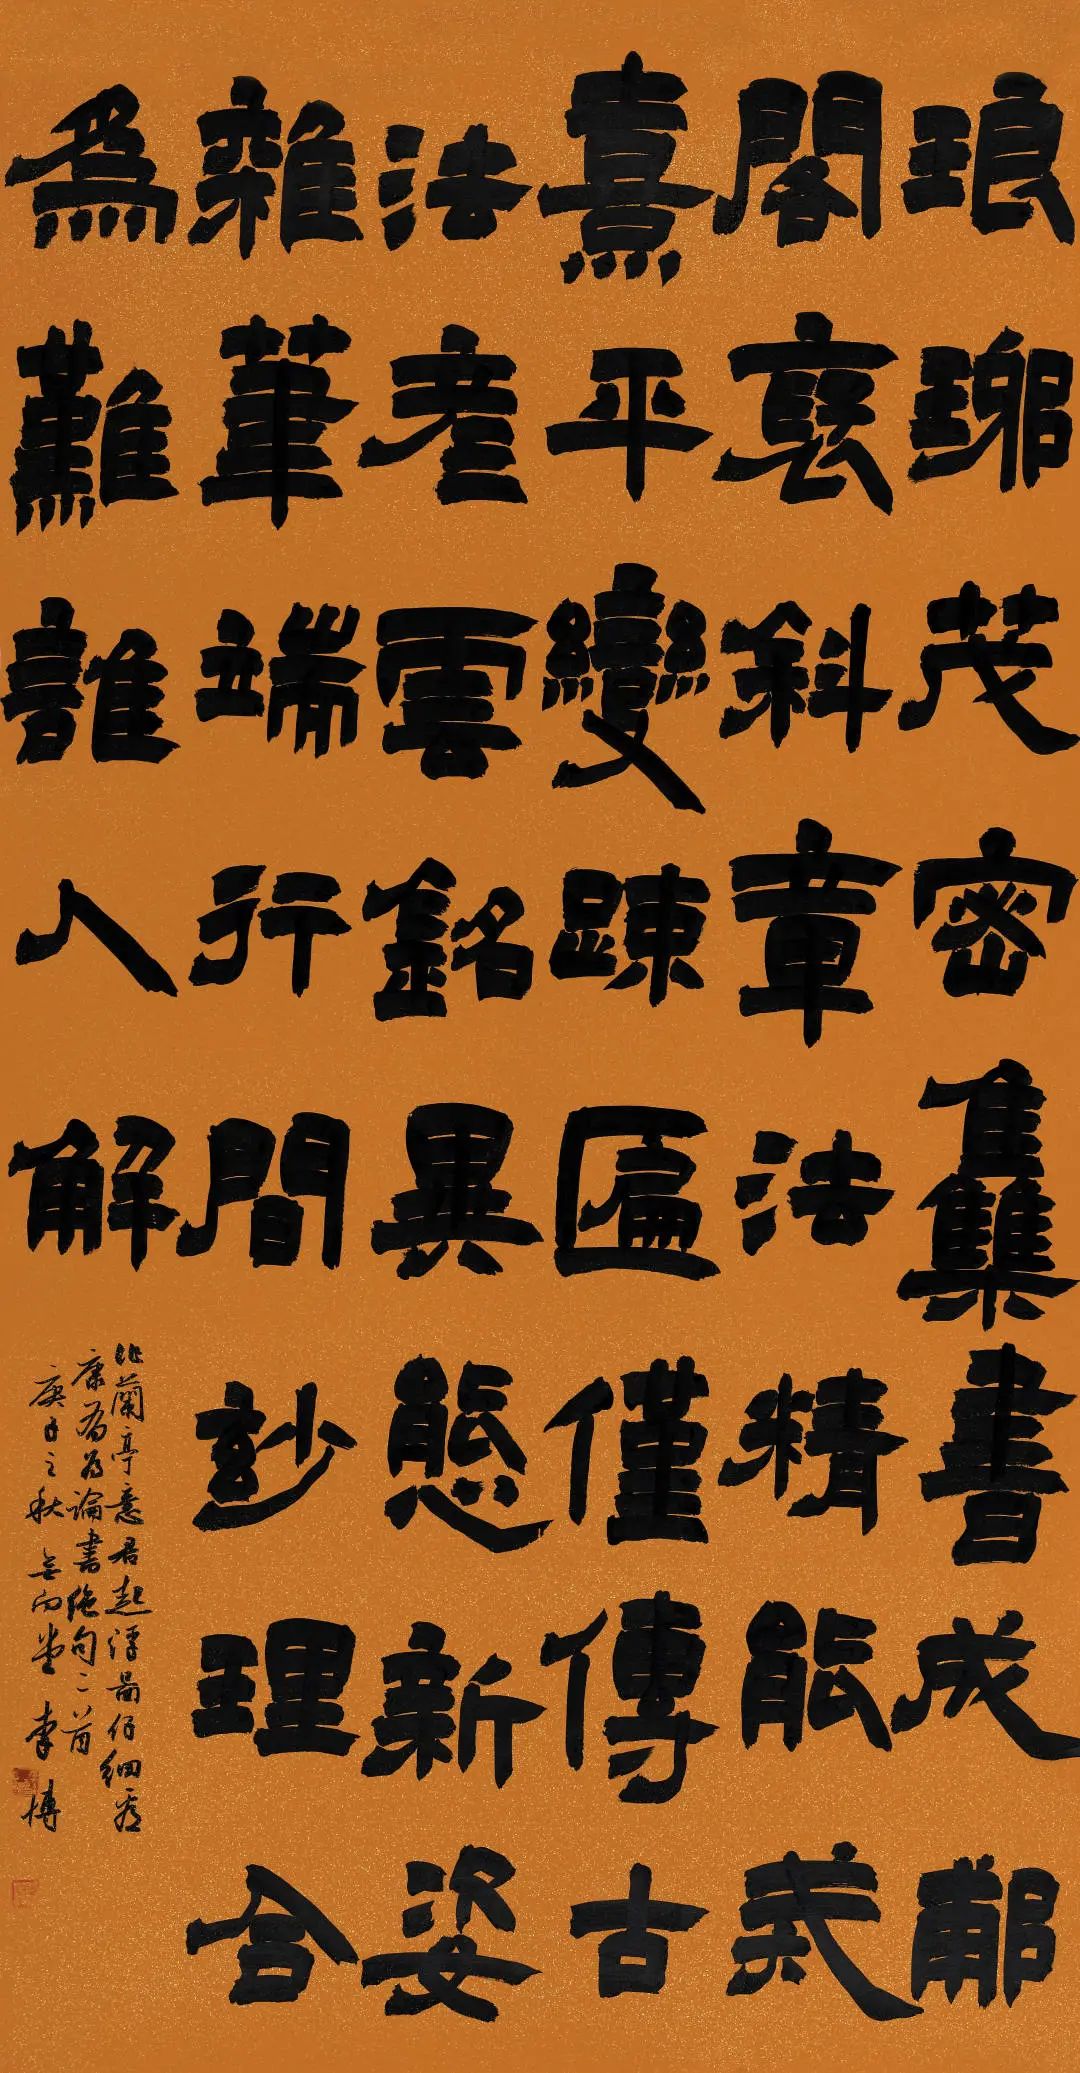 琅琊茂密集書成郙
閣褒斜章法精能
熹平變疎匾僅傳古
法考雲銘異態新姿
雜筆端行間妙理合
為難誰人解
此蘭亭意君起浮圖仔細看
康有為論書絕句二首
庚子之秋 堂 李博